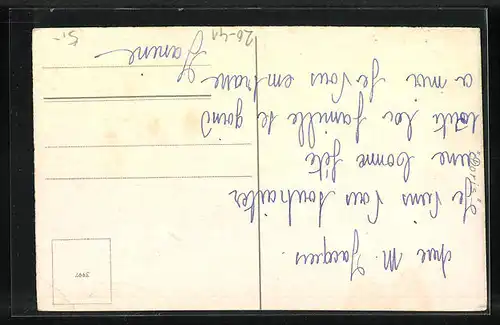 chre M. Jacques.
Je viens Vous souhaiter
une bonne fête
toute la famille se joind
a moi Je Vous embrasse
Janine
5.-